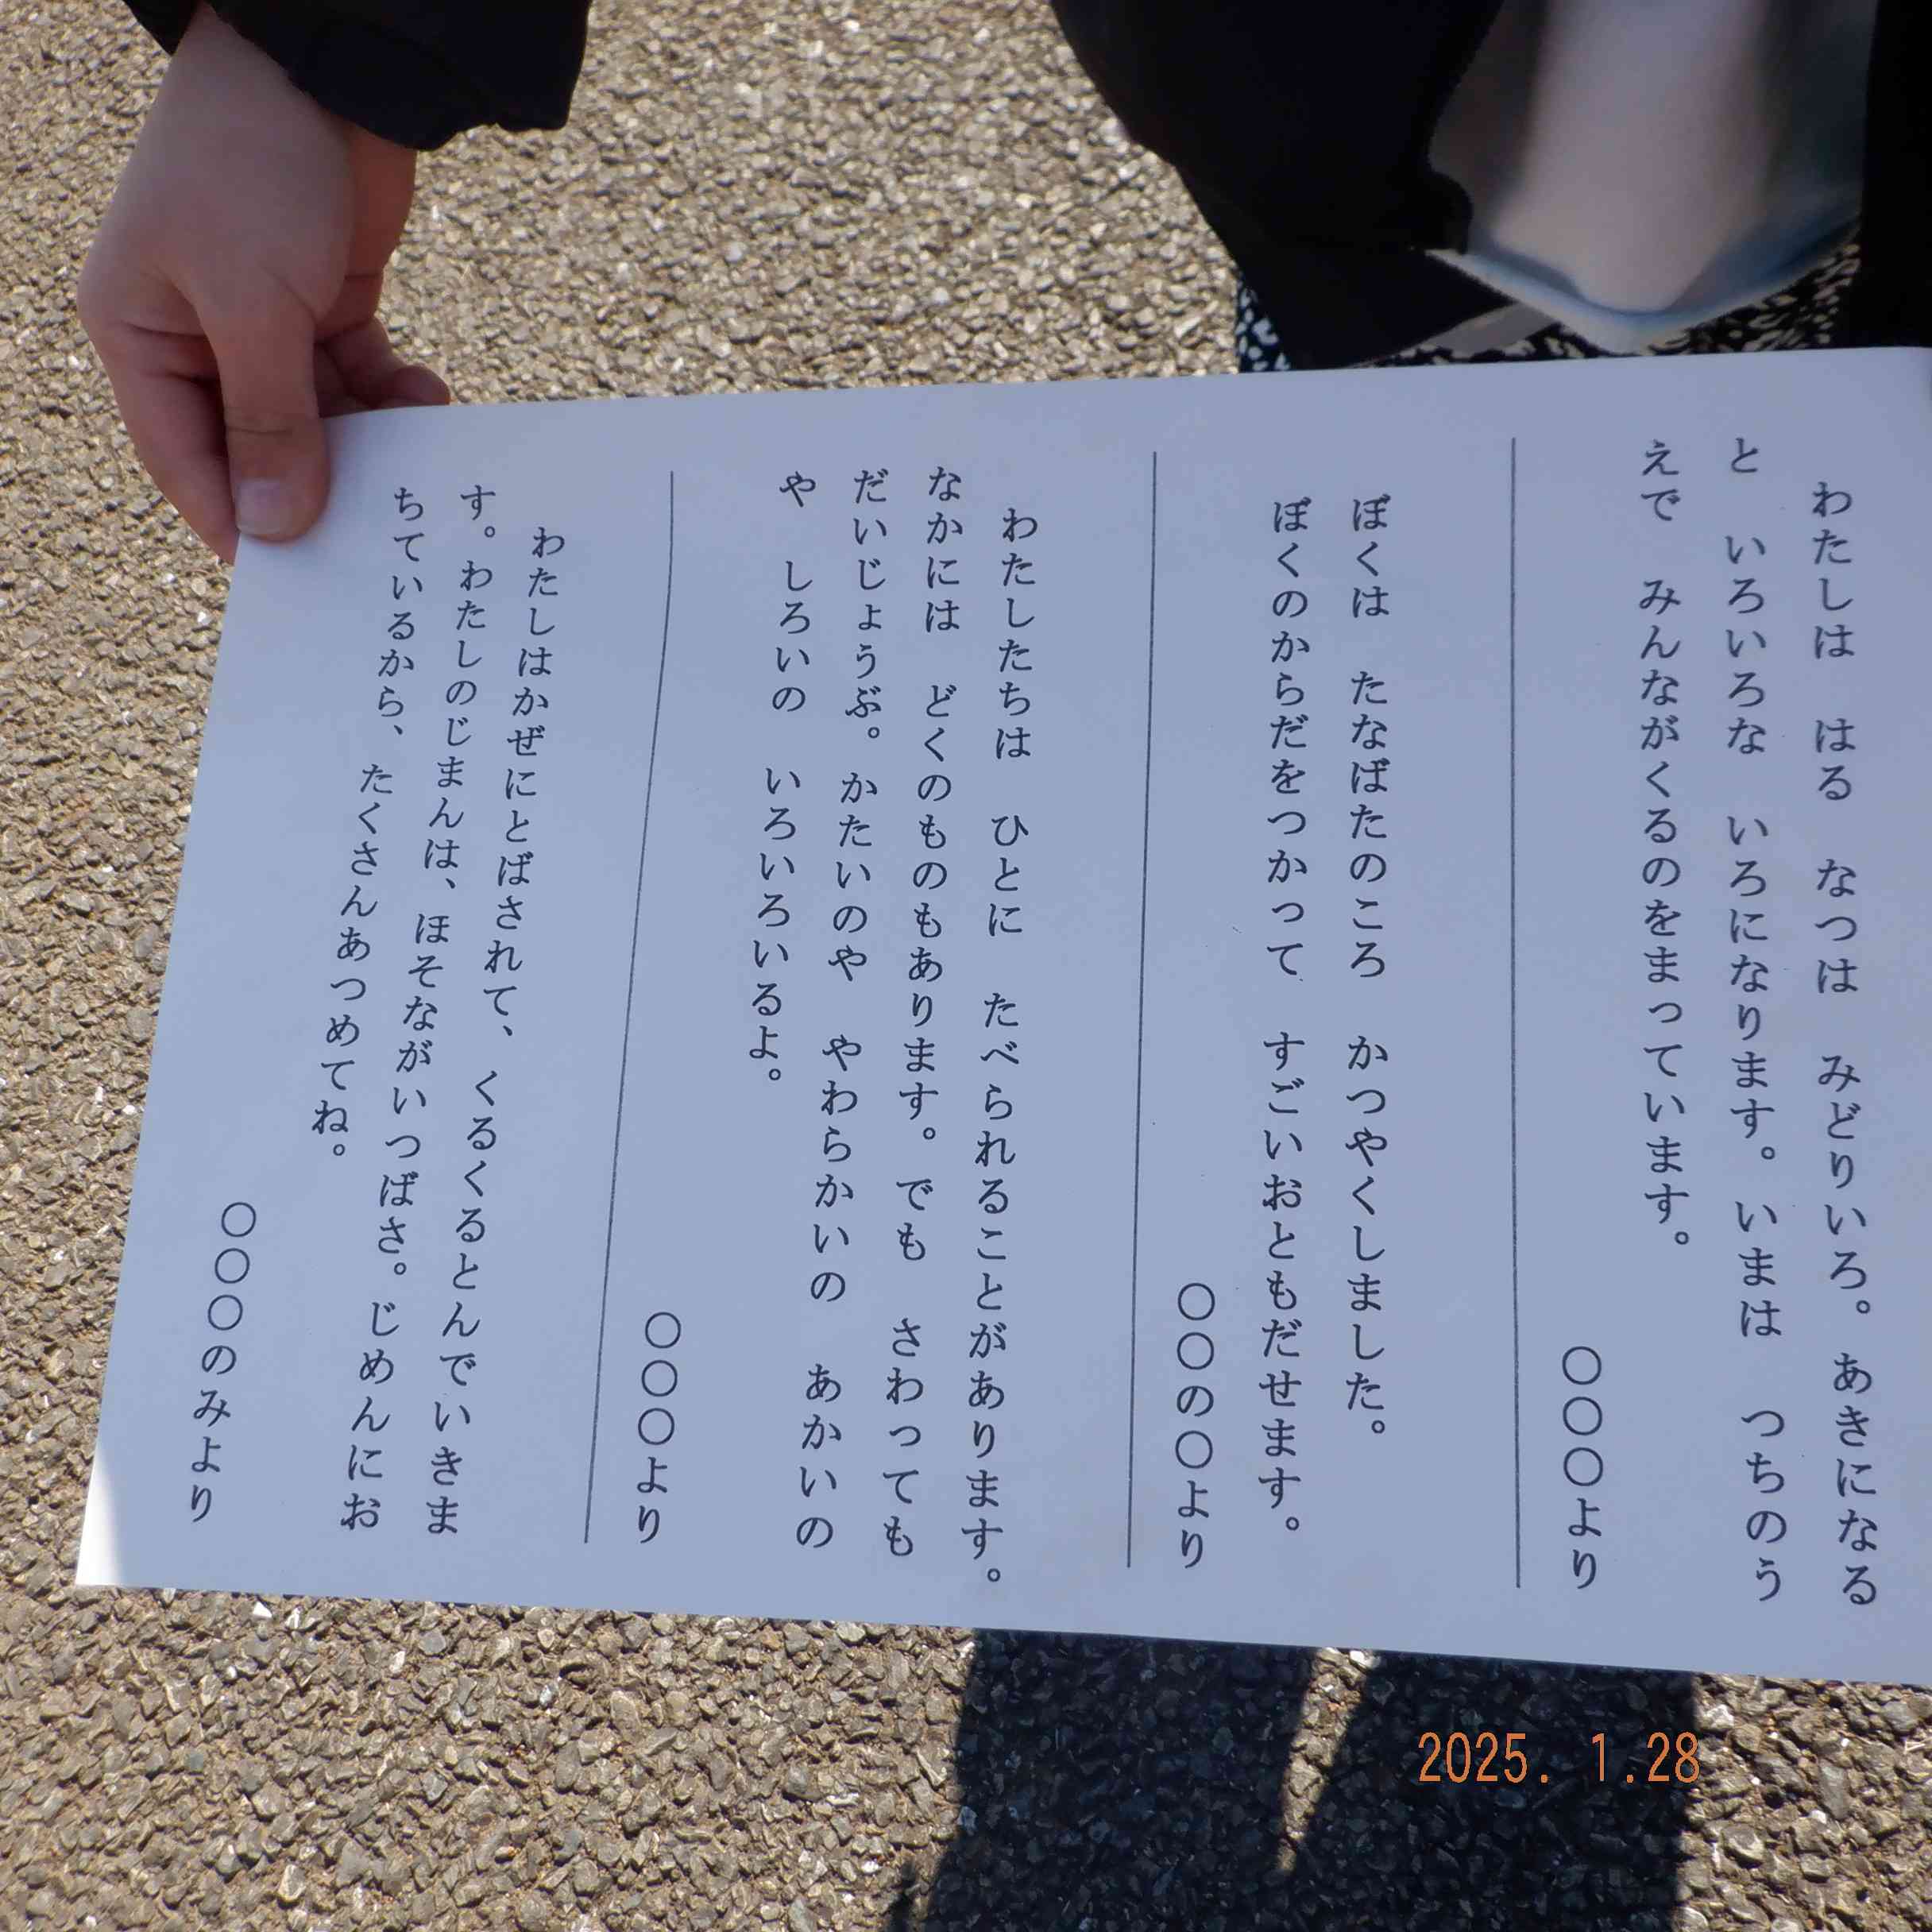 わたしは　はる　なつは　みどりいろ。あきになる
と　いろいろな　いろになります。いまは　つちのう
えで　みんながくるのをまっています。
〇〇〇より
ぼくは　たなばたのころ　かつやくしました。
ぼくのからだをつかって　すごいおともだせます。
〇〇の〇より
わたしたちは　ひとに　たべられることがあります。
なかには　どくのものもあります。でも　さわっても
だいじょうぶ。かたいのや　やわらかいの　あかいの
や　しろいの　いろいろいるよ。
〇〇〇より
わたしはかぜにとばされて、くるくるとんでいきま
す。わたしのじまんは、ほそながいつばさ。じめんにお
ちているから、たくさんあつめてね。
〇〇〇のみより
2025. 1.28